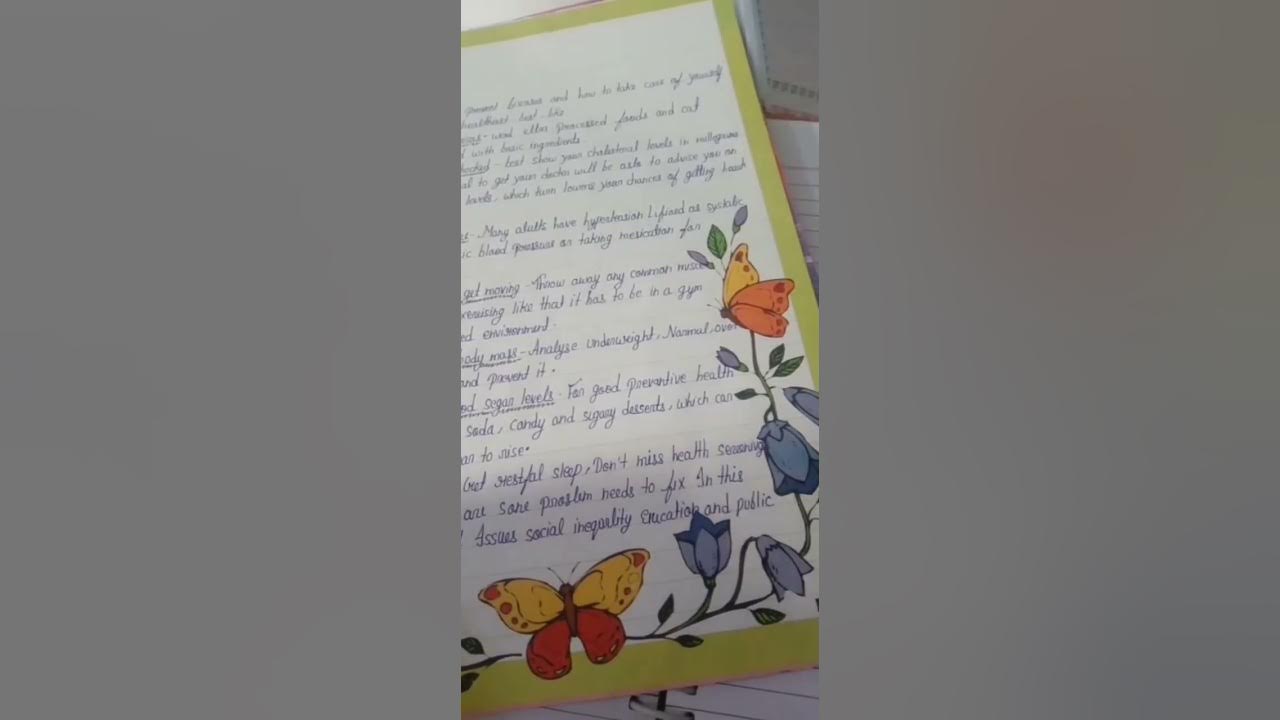 prevent diseases and how to take care of yourself
healthiest but like
processed foods and eat
with basic ingredients.
test show your cholesteral levels in
to get your doctor will be able to advise you on
levels, which turn lowers your chances of getting
Many adults have hypertension as
ic blood pressure on taking
get moving - Throw away any common
like that it has to be in a gym
ed environment.
ody mass - Analyse underweight, Normal, over
and prevent it.
od segar levels - For good preventive health
soda, candy and sigary desserts, which can
to rise.
Get restful sleep, Don't miss health
are some needs to fix In this
Issues social inequality and public